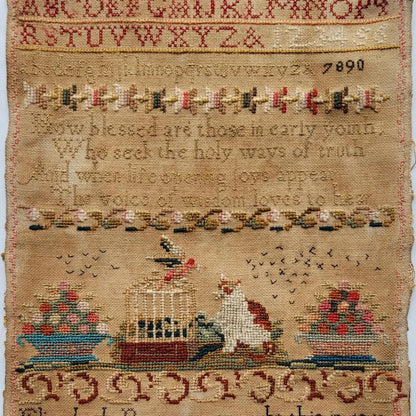 ABCDEFGHIJKLMNOP
RSTUVWXYZ& 1234 56
abcdefghijklmnopqrstuvwxyz& 7890
How blessed are those in early youth,
Who seek the holy ways of truth
And when life opening joys appear
The voice of wisdom loves to hear